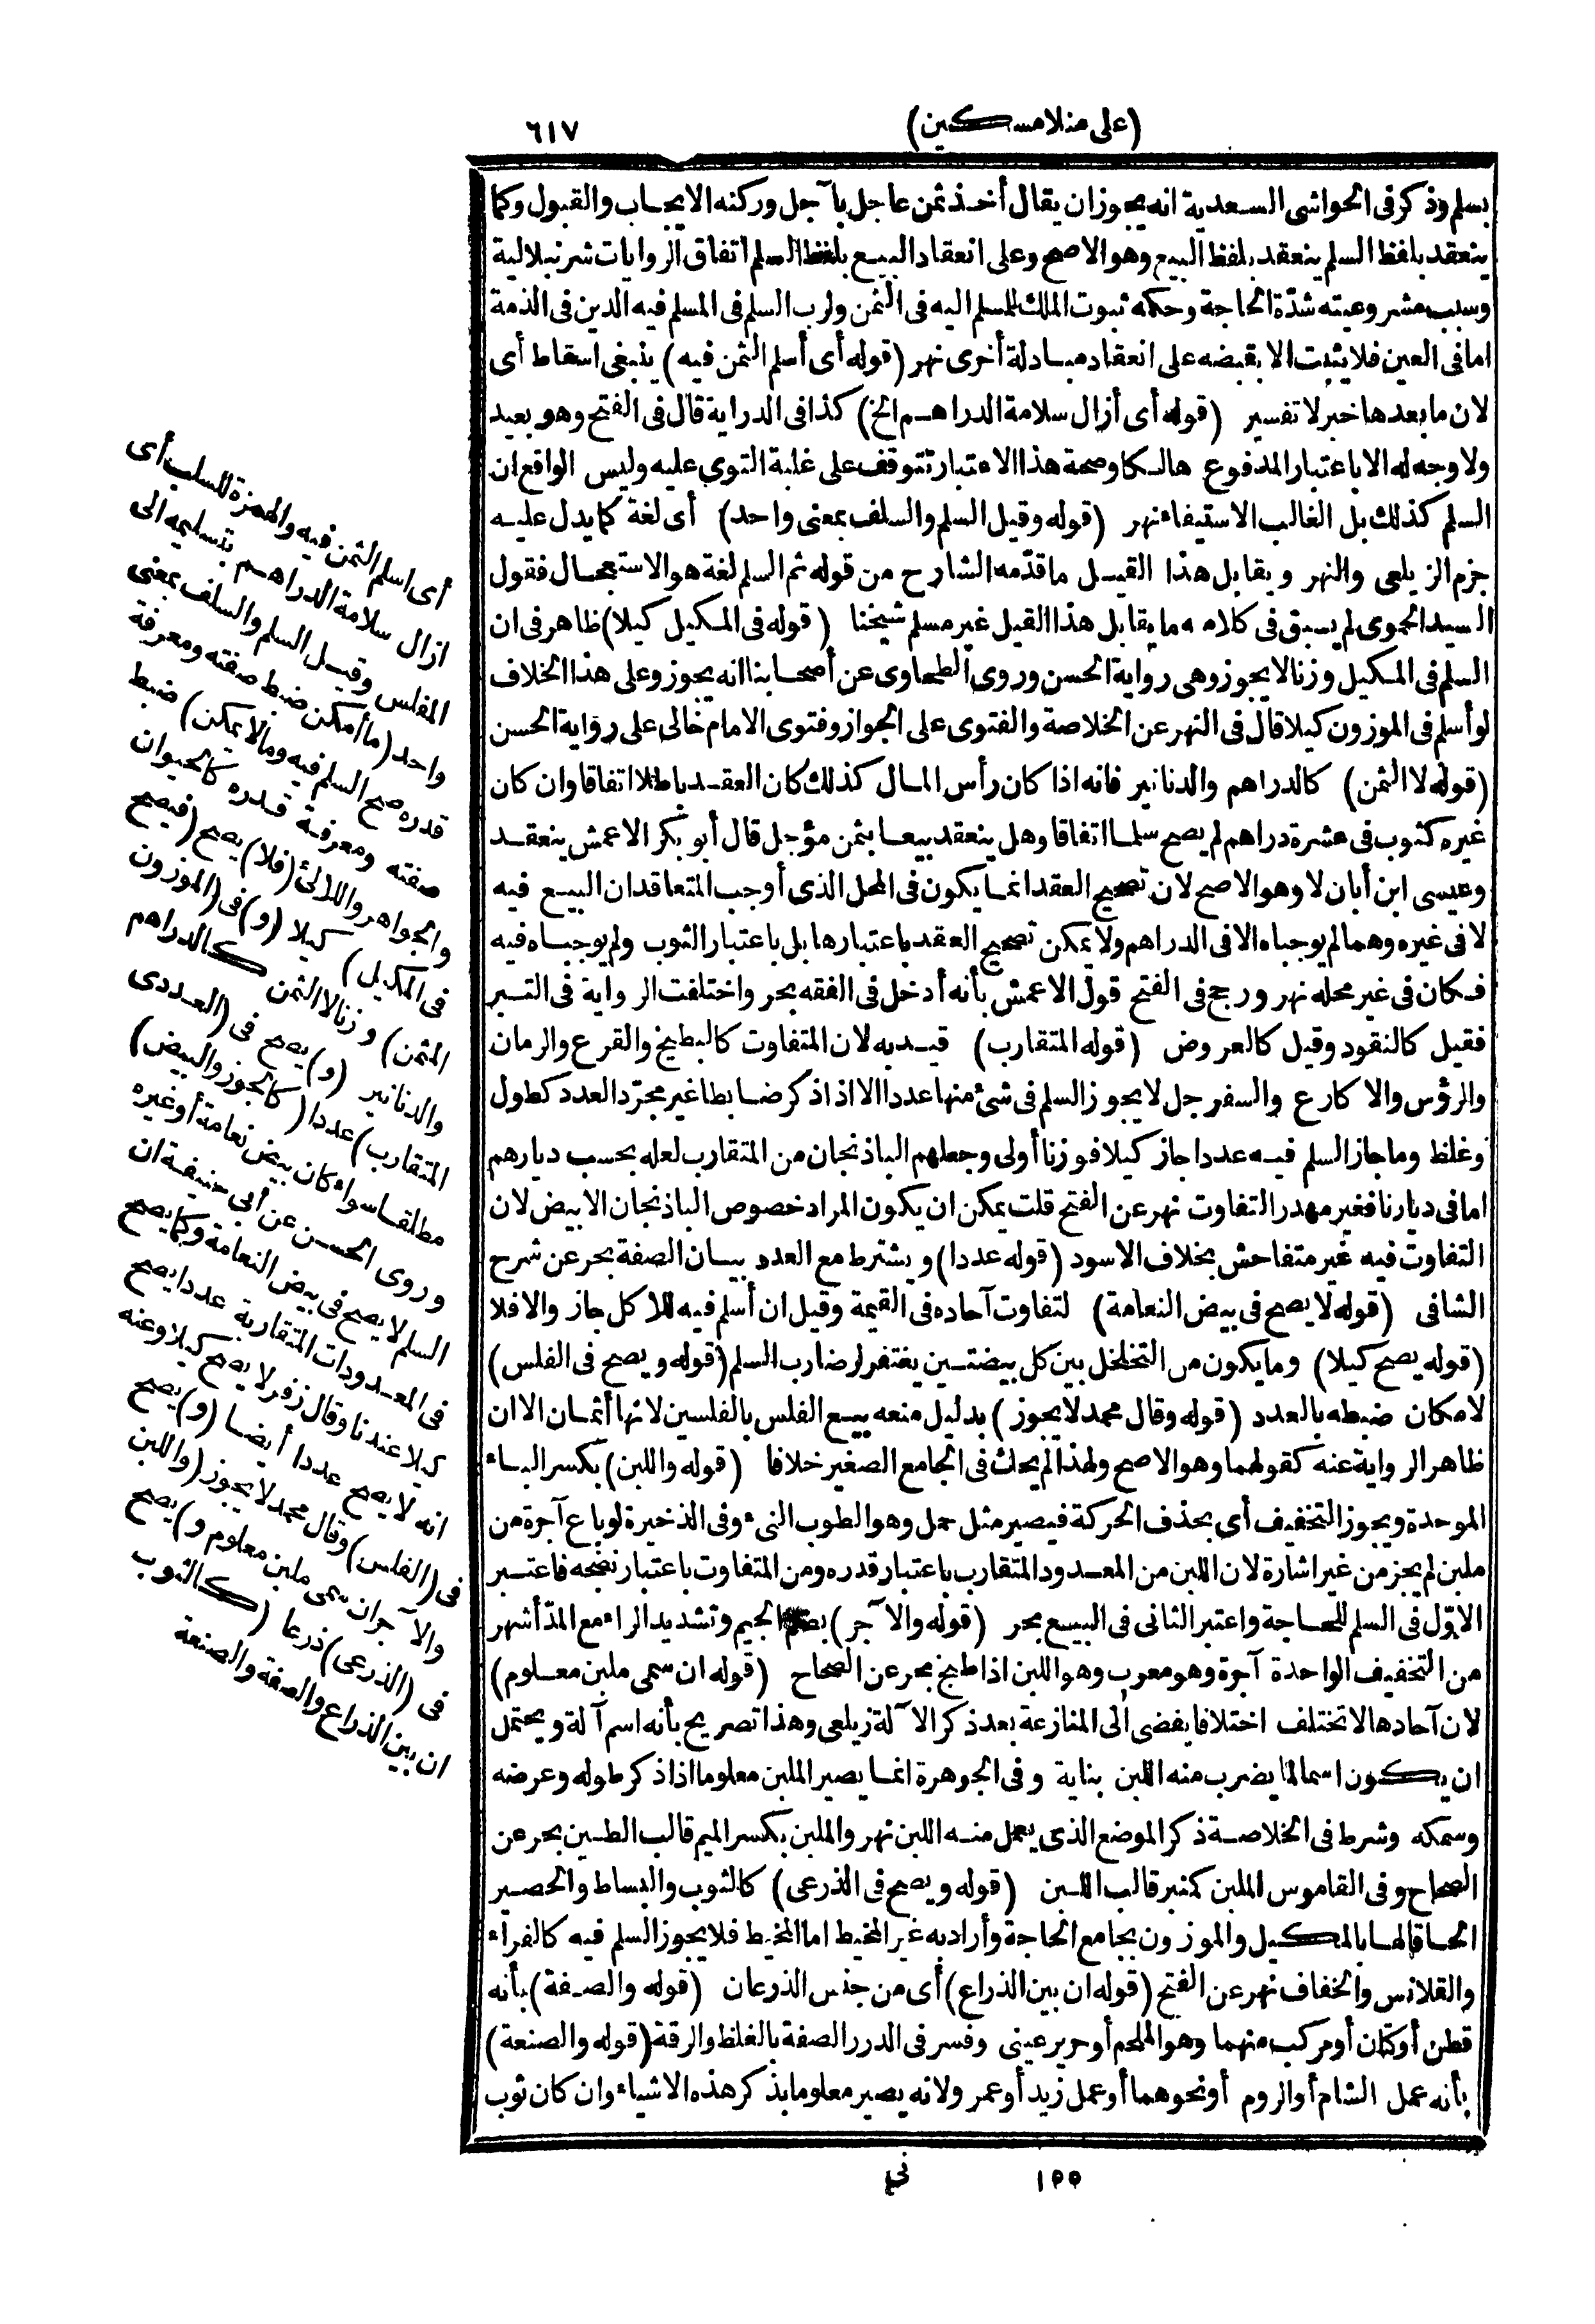 (على منلا مسكين)
٦١٧
بسلم وذكر فى الحواشى السعدية انه يجوز ان يقال أخذ ثمن عاجل بآجل وركنه الايجاب والقبول وكما
ينعقد بلفظ السلم ينعقد بلفظ البيع وهو الاصح وعلى انعقاد البيع بلفظ السلم اتفاق الروايات شرنبلالية
وسبب مشروعيته شدّة الحاجة وحكمه ثبوت الملك للمسلم اليه فى الثمن ولرب السلم فى المسلم فيه الدين فى الذمة
اما فى العين فلا يثبت الا بقبضه على انعقاد مبادلة أخرى نهر (قوله أى أسلم الثمن فيه) ينبغى اسقاط أى
لان ما بعدها خبر لا تفسير (قوله أى أزال سلامة الدراهم الخ) كذا فى الدراية قال فى الفتح وهو بعيد
ولا وجه له الا باعتبار المدفوع هالكا وصحة هذا الاعتبار تتوقف على غلبة التوى عليه وليس الواقع ان
السلم كذلك بل الغالب الاستيفاء نهر (قوله وقيل السلم والسلف بمعنى واحد) أى لغة كما يدل عليه
جزم الزيلعى والنهر ويقابل هذا القيل ما قدّمه الشارح من قوله ثم السلم لغة هو الاستعجال فقول
السيد الحموى لم يسبق فى كلامه ما يقابل هذا القيل غير مسلم شيخنا (قوله فى المكيل كيلا) ظاهر فى ان
السلم فى المكيل وزنا لا يجوز وهى رواية الحسن وروى الطحاوى عن أصحابنا انه يجوز وعلى هذا الخلاف
لو أسلم فى الموزون كيلا قال فى النهر عن الخلاصة والفتوى على الجواز وفتوى الامام خالى على رواية الحسن
(قوله لا الثمن) كالدراهم والدنانير فانه اذا كان رأس المال كذلك كان العقد باطلا اتفاقا وان كان
غيره كثوب فى عشرة دراهم لم يصح سلما اتفاقا وهل ينعقد بيعا بثمن مؤجل قال أبو بكر الاعمش ينعقد
وعيسى ابن أبان لا وهو الاصح لان تصحيح العقد انما يكون فى المحل الذى أوجب المتعاقدان البيع فيه
لا فى غيره وهما لم يوجباه الا فى الدراهم ولا يمكن تصحيح العقد باعتبارها بل باعتبار الثوب ولم يوجباه فيه
فكان فى غير محله نهر ورجح فى الفتح قول الاعمش بأنه أدخل فى الفقه بحر واختلفت الرواية فى التبر
فقيل كالنقود وقيل كالعروض (قوله المتقارب) قيد به لان المتفاوت كالبطيخ والقرع والرمان
والرؤس والاكارع والسفرجل لا يجوز السلم فى شئ منها عددا الا اذا ذكر ضابطا غير مجرّد العدد كطول
وغلظ وما جاز السلم فيه عددا جاز كيلا فوزنا أولى وجعلهم الباذنجان من المتقارب لعله بحسب ديارهم
اما فى ديارنا فغير مهدر التفاوت نهر عن الفتح قلت يمكن ان يكون المراد خصوص الباذنجان الابيض لان
التفاوت فيه غير متفاحش بخلاف الاسود (قوله عددا) ويشترط مع العدد بيان الصفة بحر عن شرح
الشافى (قوله لا يصح فى بيض النعامة) لتفاوت آحاده فى القيمة وقيل ان أسلم فيه للاكل جاز والا فلا
(قوله يصح كيلا) وما يكون من التخلخل بين كل بيضتين يغتفر لرضا رب السلم (قوله ويصح فى الفلس)
لامكان ضبطه بالعدد (قوله وقال محمد لا يجوز) بدليل منعه بيع الفلس بالفلسين لانها أثمان الا ان
ظاهر الرواية عنه كقولهما وهو الاصح ولهذا لم يحك فى الجامع الصغير خلافا (قوله واللبن) بكسر الباء
الموحدة ويجوز التخفيف أى بحذف الحركة فيصير مثل حمل وهو الطوب النىء وفى الذخيرة لو باع آجرة من
ملبن لم يجز من غير اشارة لان اللبن من المعدود المتقارب باعتبار قدره ومن المتفاوت باعتبار نضجه فاعتبر
الاوّل فى السلم للحاجة واعتبر الثانى فى البيع بحر (قوله والآجر) بضم الجيم وتشديد الراء مع المدّ أشهر
من التخفيف الواحدة آجرة وهو معرب وهو اللبن اذا طبخ بحر عن الصحاح (قوله ان سمى ملبن معلوم)
لان آحادها لا تختلف اختلافا يفضى الى المنازعة بعد ذكر الآلة زيلعى وهذا تصريح بأنه اسم آلة ويحتمل
ان يكون اسما لما يضرب منه اللبن بناية وفى الجوهرة انما يصير الملبن معلوما اذا ذكر طوله وعرضه
وسمكه وشرط فى الخلاصة ذكر الموضع الذى يعمل منه اللبن نهر والملبن بكسر الميم قالب الطين بحر عن
الصحاح وفى القاموس الملبن كمنبر قالب اللبن (قوله ويصح فى الذرعى) كالثوب والبساط والحصير
الحاقا لها بالمكيل والموزون بجامع الحاجة وأراد به غير المخيط اما المخيط فلا يجوز السلم فيه كالفراء
والقلانس والخفاف نهر عن الفتح (قوله ان بين الذراع) أى من جنس الذرعان (قوله والصفة) بأنه
قطن أو كتان أو مركب منهما وهو الملحم أو حرير عينى وفسر فى الدرر الصفة بالغلظ والرقة (قوله والصنعة)
بأنه عمل الشام أو الروم أو نحوهما أو عمل زيد أو عمر ولانه يصير معلوما بذكر هذه الاشياء وان كان ثوب
أى اسلم الثمن فيه والهمزة للسلب أى
ازال سلامة الدراهم بتسليمه الى
المفلس وقيل السلم والسلف بمعنى
واحد (ما أمكن ضبط صفته ومعرفة
قدره صح السلم فيه وما لا يمكن) ضبط
صفته ومعرفة قدره كالحيوان
والجواهر واللآلئ (فلا) يصح (فيصح
فى المكيل) كيلا (و) فى (الموزون
المثمن) وزنا لا الثمن كالدراهم
والدنانير (و) يصح فى (العددى
المتقارب) عددا (كالجوز والبيض)
مطلقا سواء كان بيض نعامة أو غيره
وروى الحسن عن أبى حنيفة ان
السلم لا يصح فى بيض النعامة وكما يصح
فى المعدودات المتقاربة عددا يصح
كيلا عندنا وقال زفر لا يصح كيلا وعنه
انه لا يصح عددا أيضا (و) يصح
فى (الفلس) وقال محمد لا يجوز (واللبن
والآجر ان سمى ملبن معلوم و) يصح
فى (الذرعى) ذرعا (كالثوب
ان بين الذراع والصفة والصنعة
١٥٥
نى